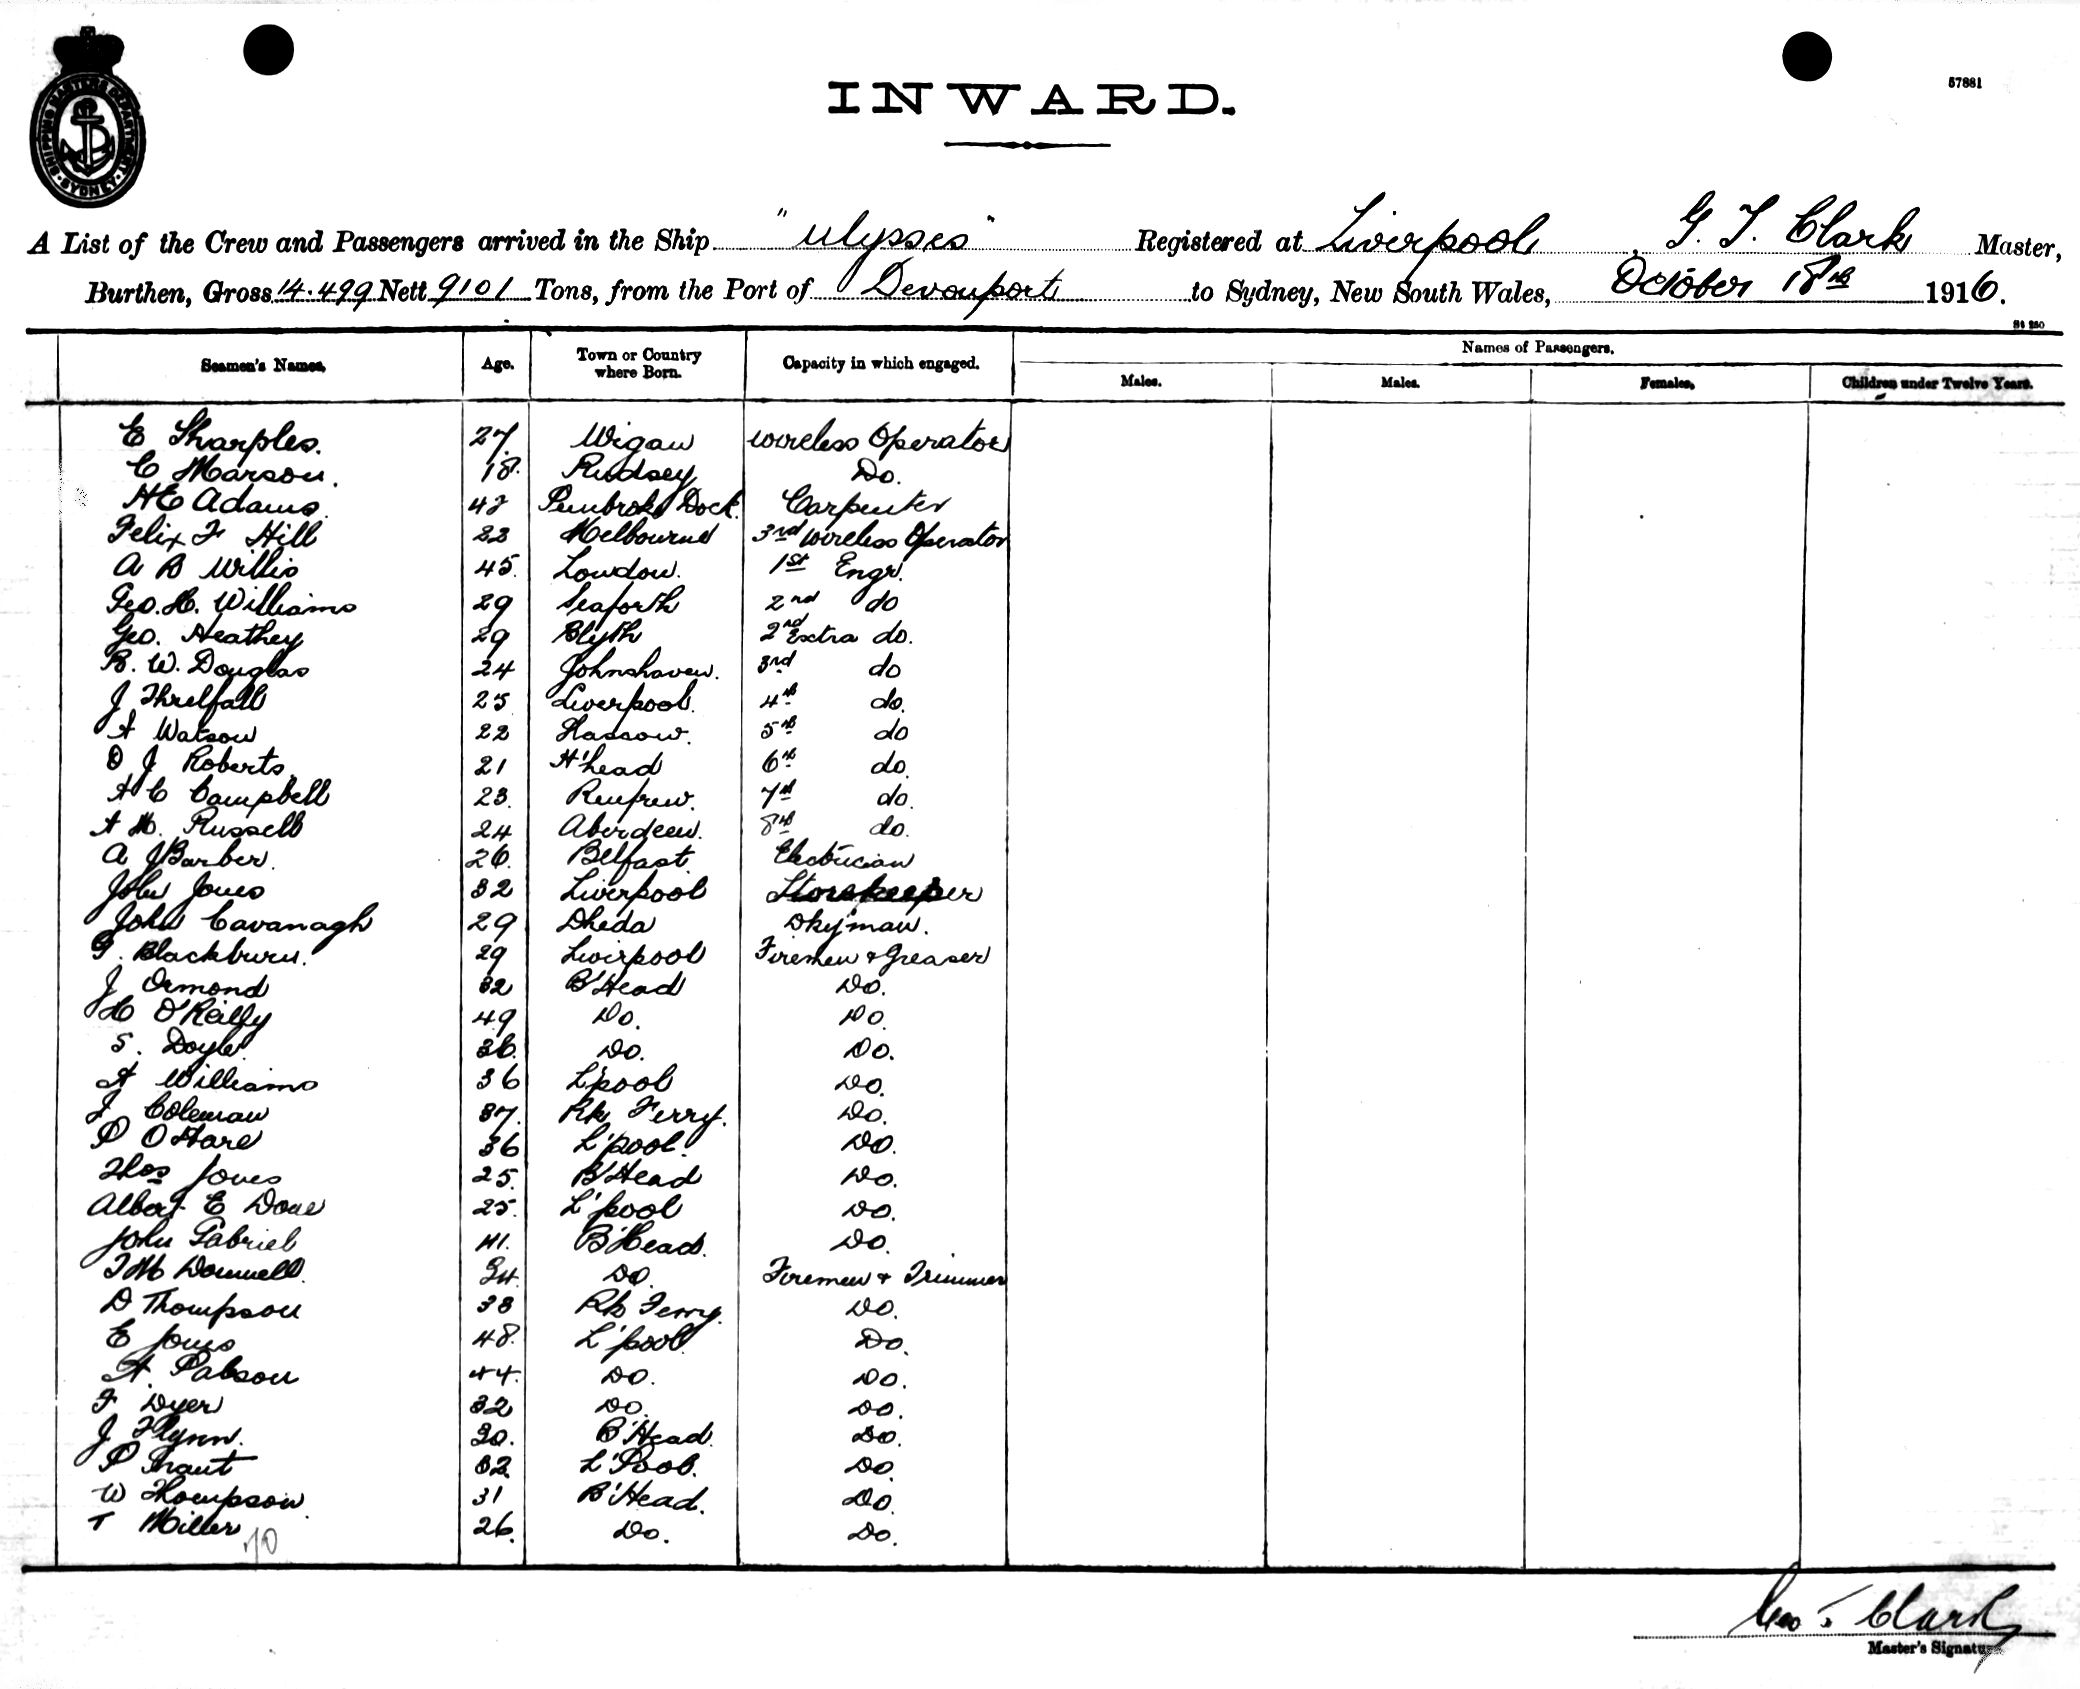 SHIPPING MASTERS DEPARTMENT · SYDNEY ·
57881
INWARD.
A List of the Crew and Passengers arrived in the Ship "Ulysses" Registered at Liverpool, G. T. Clark Master,
Burthen, Gross 14.499 Nett 9101 Tons, from the Port of Devonport to Sydney, New South Wales, October 18th 1916.
St 250
Seamen's Names. Age. Town or Country where Born. Capacity in which engaged. Names of Passengers.
Males. Males. Females. Children under Twelve Years.
E Sharples. 27. Wigan Wireless Operator
C Marson. 18. Do.
H E Adams. Pembroke Dock. Carpenter
Felix F Hill 22 Melbourne 3rd Wireless Operator
A B Willis 45. London. 1st Engr.
Geo. H. Williams 29 Seaforth 2nd do
Geo. Heathey 29 Blyth 2nd Extra do.
R. W. Douglas 24 Johnshaven. 3rd do
J Threlfall 25 Liverpool. 4th do.
A Watson 22 5th do
O J Roberts. 21 6th do.
A C Campbell 23. Renfrew. 7th do.
A M. Russell 24 Aberdeen. 8th do.
A J Barber. 26. Belfast. Electrician
John Jones 32 Liverpool Storekeeper
John Cavanagh 29 Dkyman.
G. Blackburn. 29 Liverpool Firemen & Greaser
J Ormond 32 B'Head Do.
H O'Reilly 49 Do. Do.
S. Doyle. 36. Do. Do.
A Williams 36 L'pool Do.
J Coleman 37. Rk Ferry. Do.
P O'Hare 36 L'pool. Do.
Thos Jones 25. B'Head Do.
Albert E Dove 25. L'pool Do.
John Gabriel 41. B'Head. Do.
T Mc Donnell. 34. Do. Firemen & Trimmer
D Thompson 38 Rk Ferry. Do.
E Jones 48. L'pool. Do.
A. Pabson 44. Do. Do.
F Dyer 32 Do. Do.
J Flynn. 30. B'Head. Do.
P 32. L'Pool. Do.
W Thompson. 31 B'Head. Do.
T Miller 26. Do. Do.
70
Geo T Clark
Master's Signature